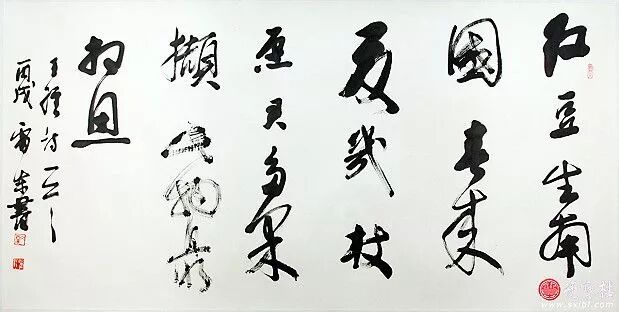 红豆生南
國春来
发幾枝
愿君多采
擷此物最
相思
王维诗一首
丙戌雷书